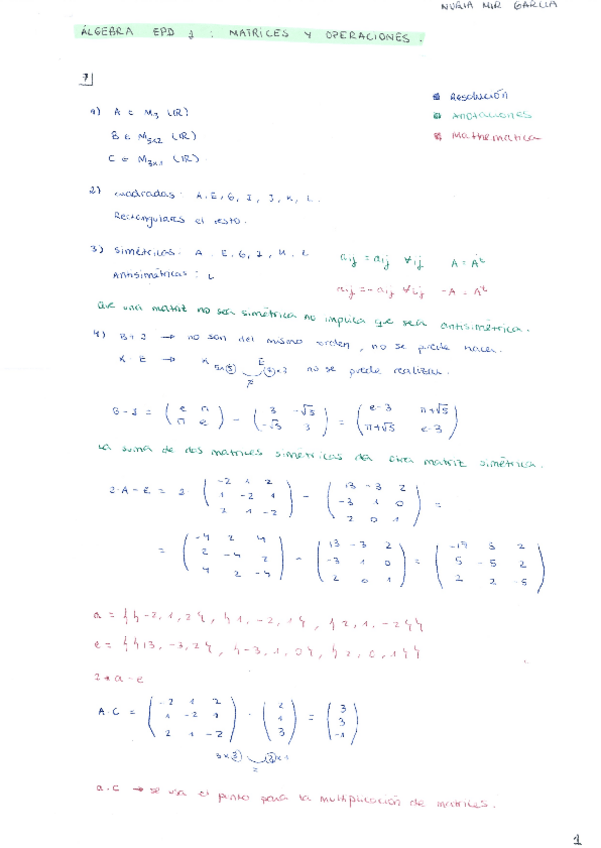 NURIA MIR GARCIA
ÁLGEBRA EPD 1 : MATRICES Y OPERACIONES.
1
Resolución
Anotaciones
Mathematica
1) A ∈ M3 (R)
B ∈ M5x2 (R)
C ∈ M3x1 (R)
2) Cuadradas: A, E, G, I, J, K, L.
Rectangulares el resto.
3) Simétricas: A, E, G, J, K,
Antisimétricas: L
aij = aij ∀ij A = At
aij = -aij ∀ij -A = At
Que una matriz no sea simétrica no implica que sea antisimétrica.
4) B+2 → no son del mismo orden, no se puede hacer.
K·E → K 5x5 E 3x3 no se puede realizar.
G-J = ( e π / π e ) - ( 3 -√5 / -√5 3 ) = ( e-3 π+√5 / π+√5 e-3 )
La suma de dos matrices simétricas da otra matriz simétrica.
2·A-E = 2 ( -2 1 2 / 1 -2 1 / 2 1 -2 ) - ( 13 -3 2 / -3 1 0 / 2 0 1 ) =
= ( -4 2 4 / 2 -4 2 / 4 2 -4 ) - ( 13 -3 2 / -3 1 0 / 2 0 1 ) = ( -17 5 2 / 5 -5 2 / 2 2 -5 )
a = {{-2,1,2}, {1,-2,1}, {2,1,-2}}
e = {{13,-3,2}, {-3,1,0}, {2,0,1}}
2*a-e
A·C = ( -2 1 2 / 1 -2 1 / 2 1 -2 ) · ( 2 / 1 / 3 ) = ( 3 / 3 / -1 )
3x3 3x1
=
a.c → se usa el punto para la multiplicación de matrices.
1